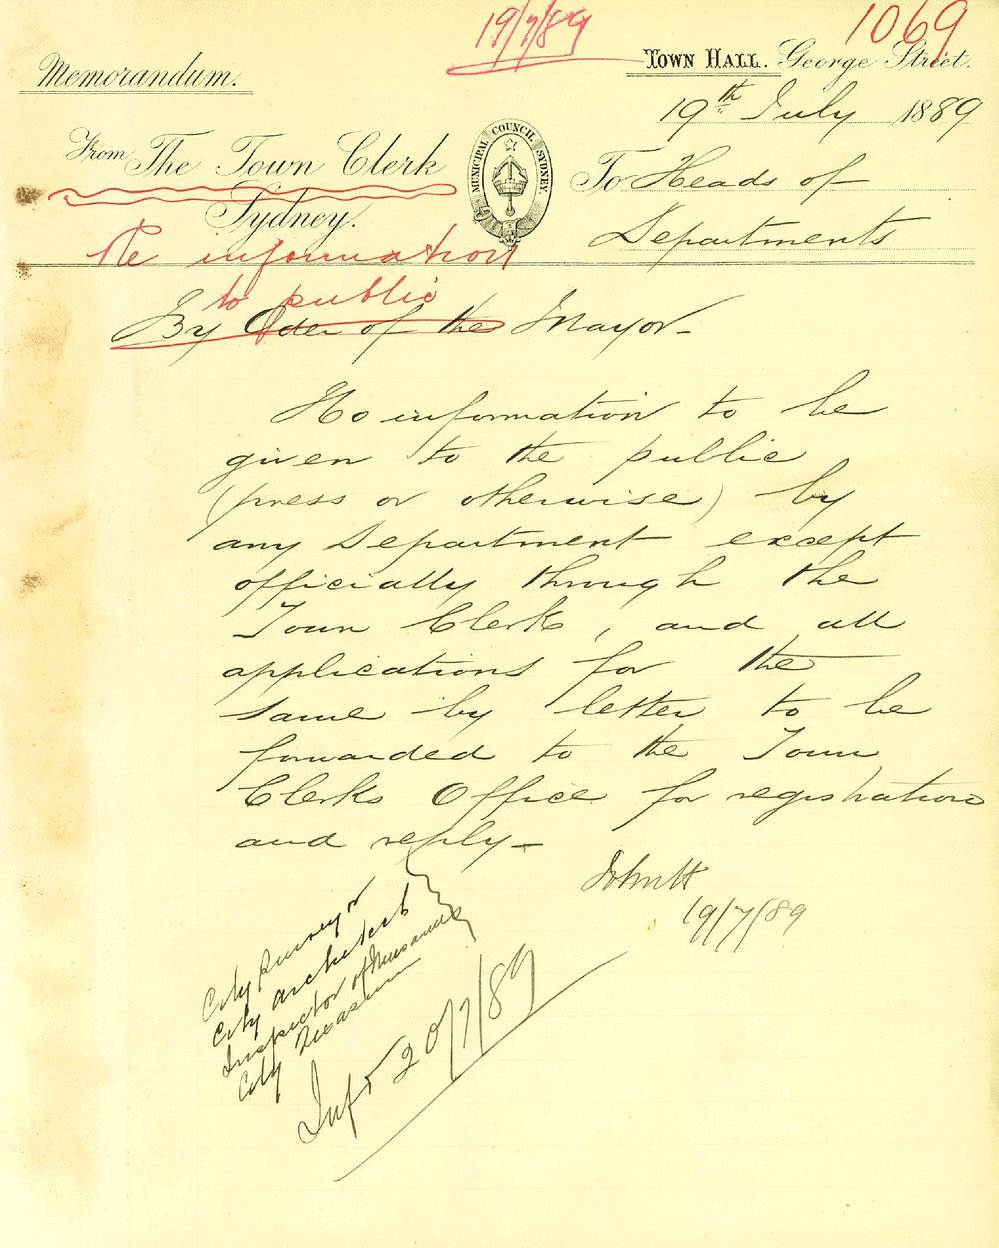 19/7/89
1069
Memorandum.
TOWN HALL. George Street.
19th July 1889
From The Town Clerk
Sydney.
MUNICIPAL COUNCIL SYDNEY.
To Heads of
Departments
Re information
to public
By Oder of the Mayor-
No information to be
given to the public
(press or otherwise) by
any Department except
officially through the
Town Clerk, and all
applications for the
same by letter to be
forwarded to the Town
Clerks Office for registration
and reply-
19/7/89
City Surveyor
City Architect
Inspector of Nuisances
City Treasurer
Infd 20/7/89